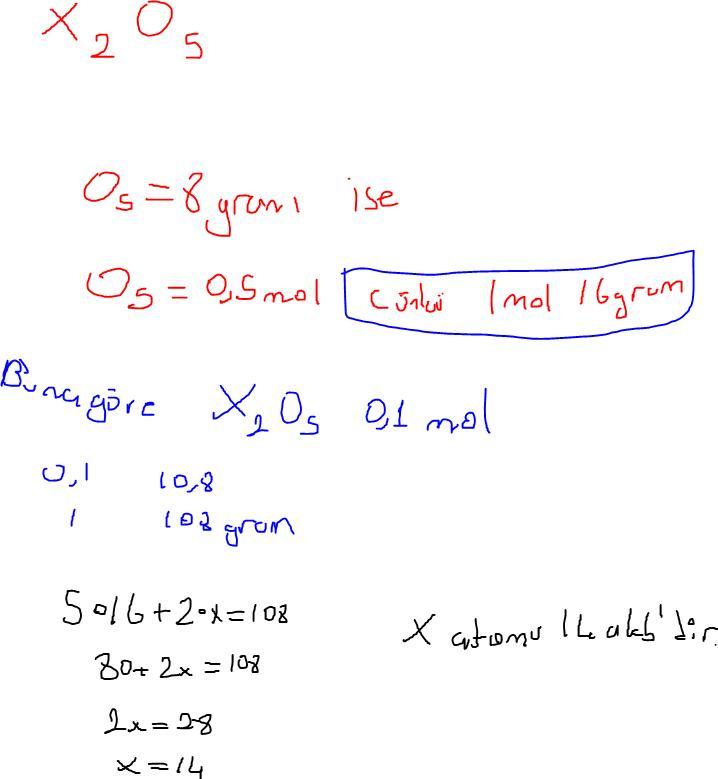 X₂O₅
O₅ = 8 gramı ise
O₅ = 0,5 mol çünkü 1 mol 16 gram
Buna göre X₂O₅ 0,1 mol
0,1 10,8
1 108 gram
5∘16 + 2∘x = 108
80 + 2x = 108
2x = 28
x = 14
X atomu 14 akb'dir.